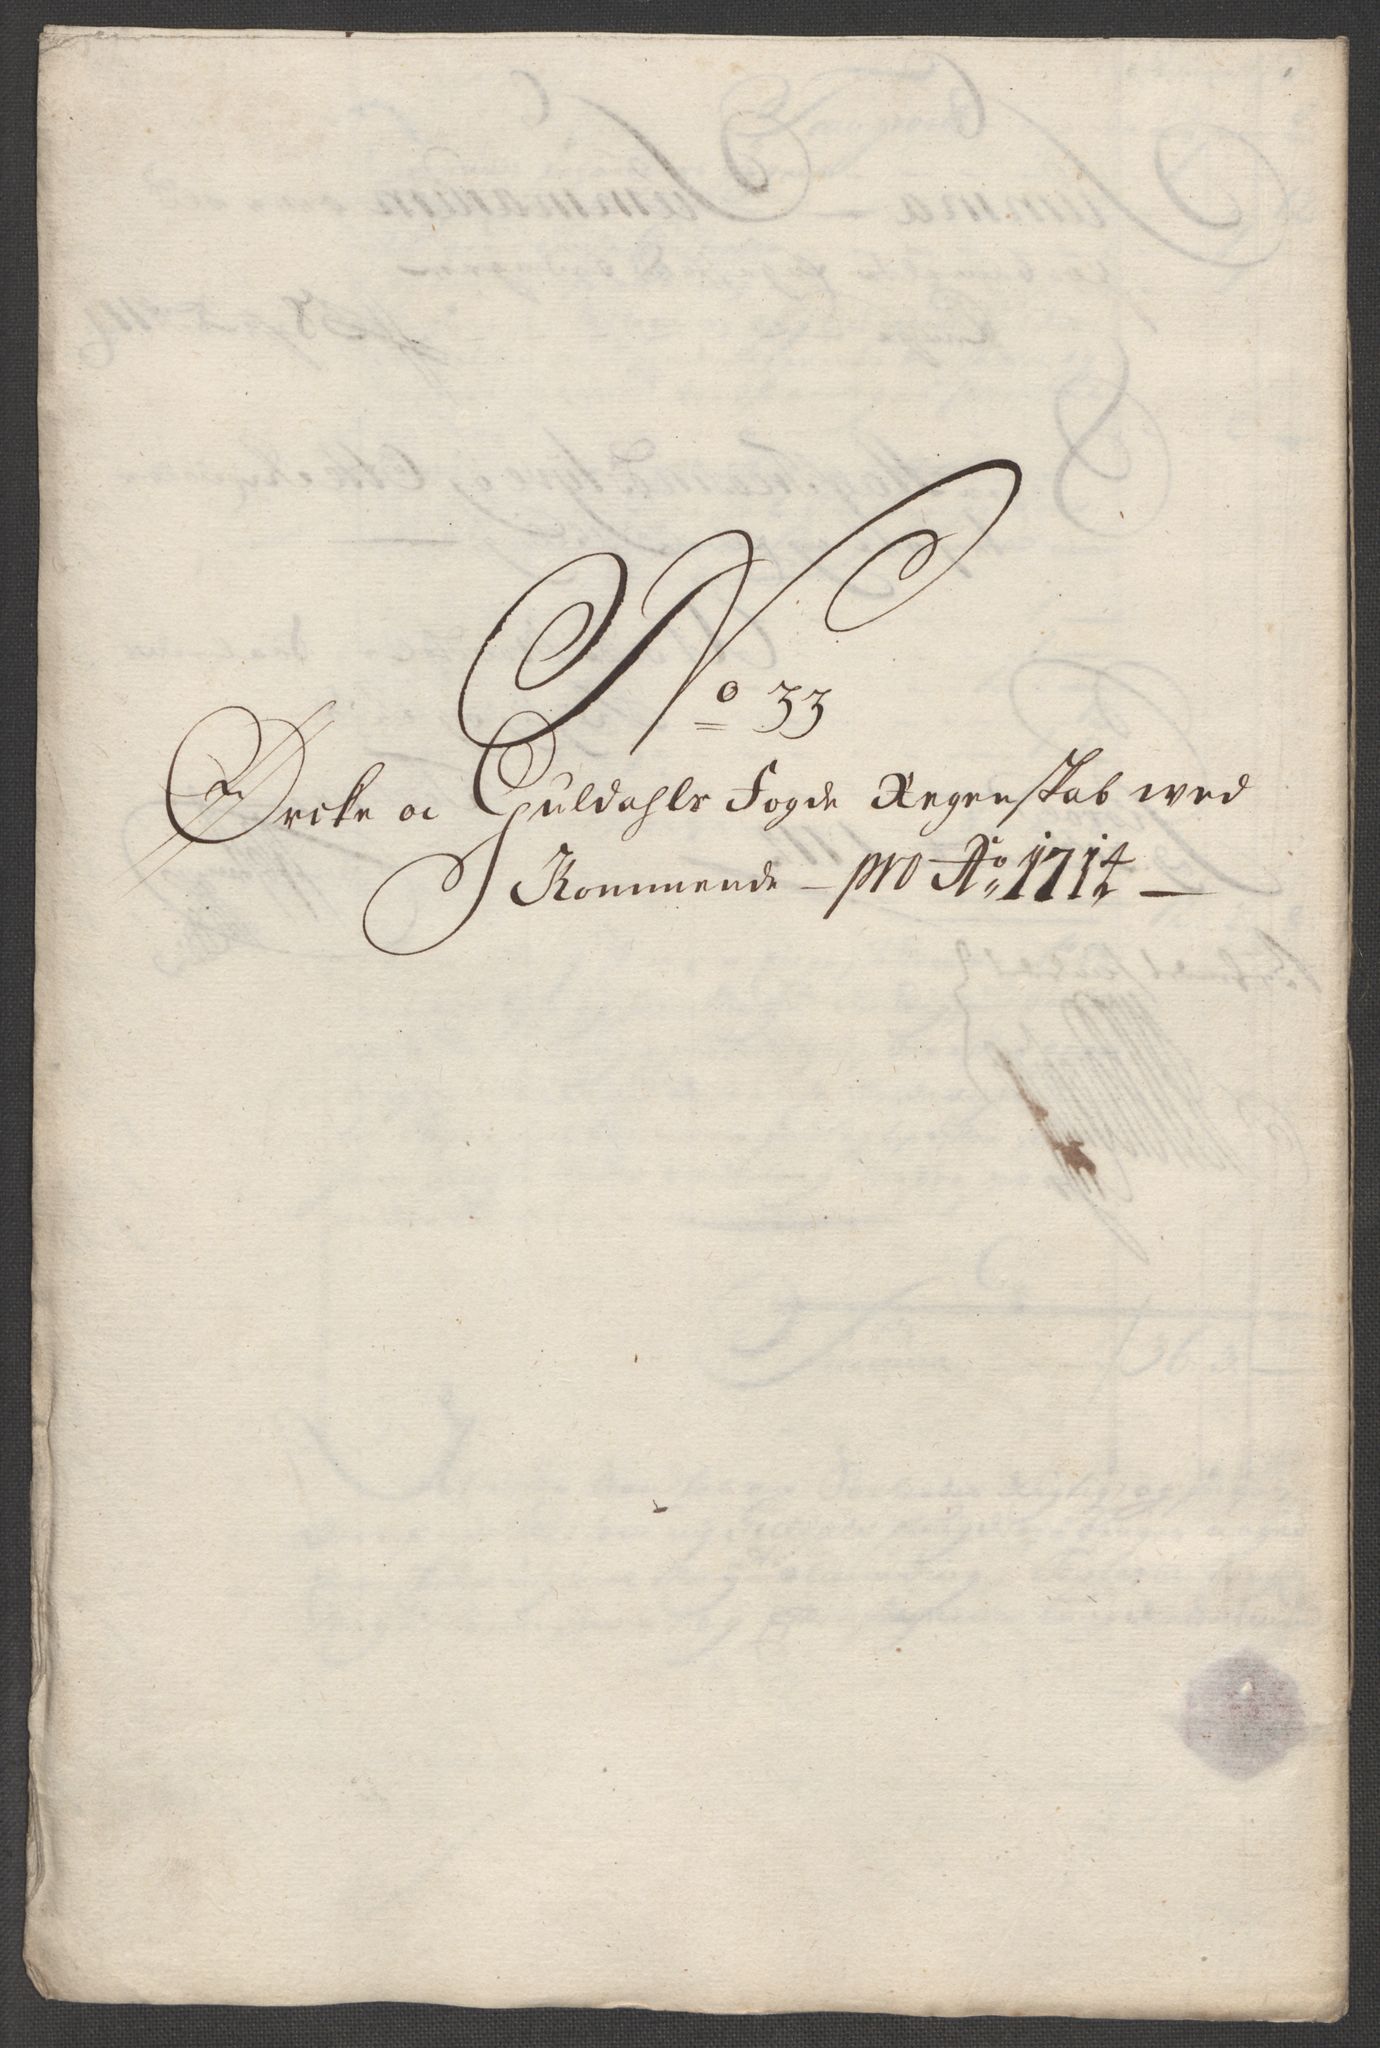 No 33
Örcke oc Guldahls Fogde Regenskab wed
Kommende – pro Ao 1714 –